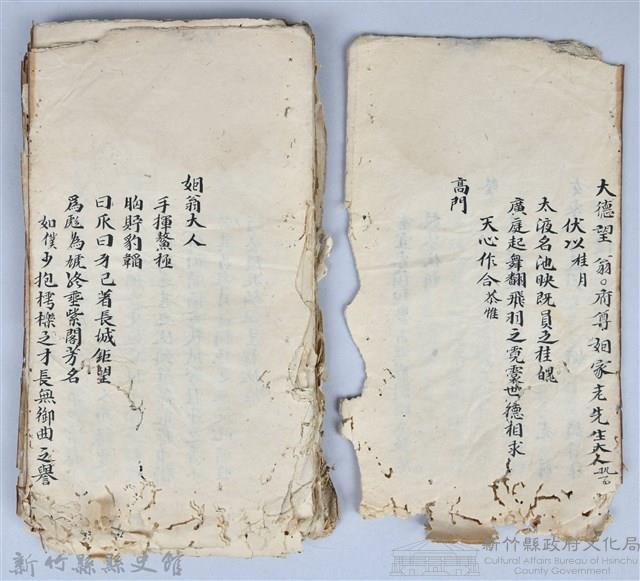 大德望翁○府尊姻家老先生大人
伏以桂月
太液名池映既員之桂魄
廣庭起舞翻飛羽之霓裳世德相求
天心作合恭惟
高門
姻翁大人
手揮鰲極
胸貯豹韜
曰爪曰牙已著長城鉅望
為彪為虓終垂紫閣芳名
如僕少抱樗櫟之才長無御曲之譽
新竹縣縣史館
新竹縣政府文化局
Cultural Affairs Bureau of Hsinchu
County Government